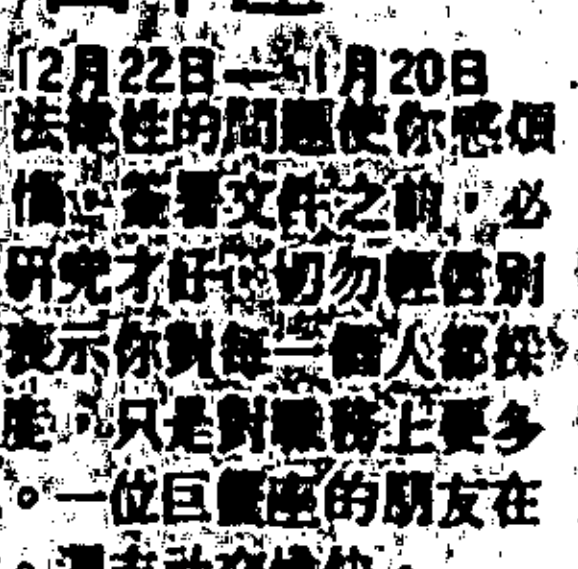 12月22日—1月20日
法律性的問題使你感煩
惱。簽署文件之前，必
研究才好，切勿輕信別
表示你對每一個人都採
度，只是對職務上要多
。一位巨蟹座的朋友在